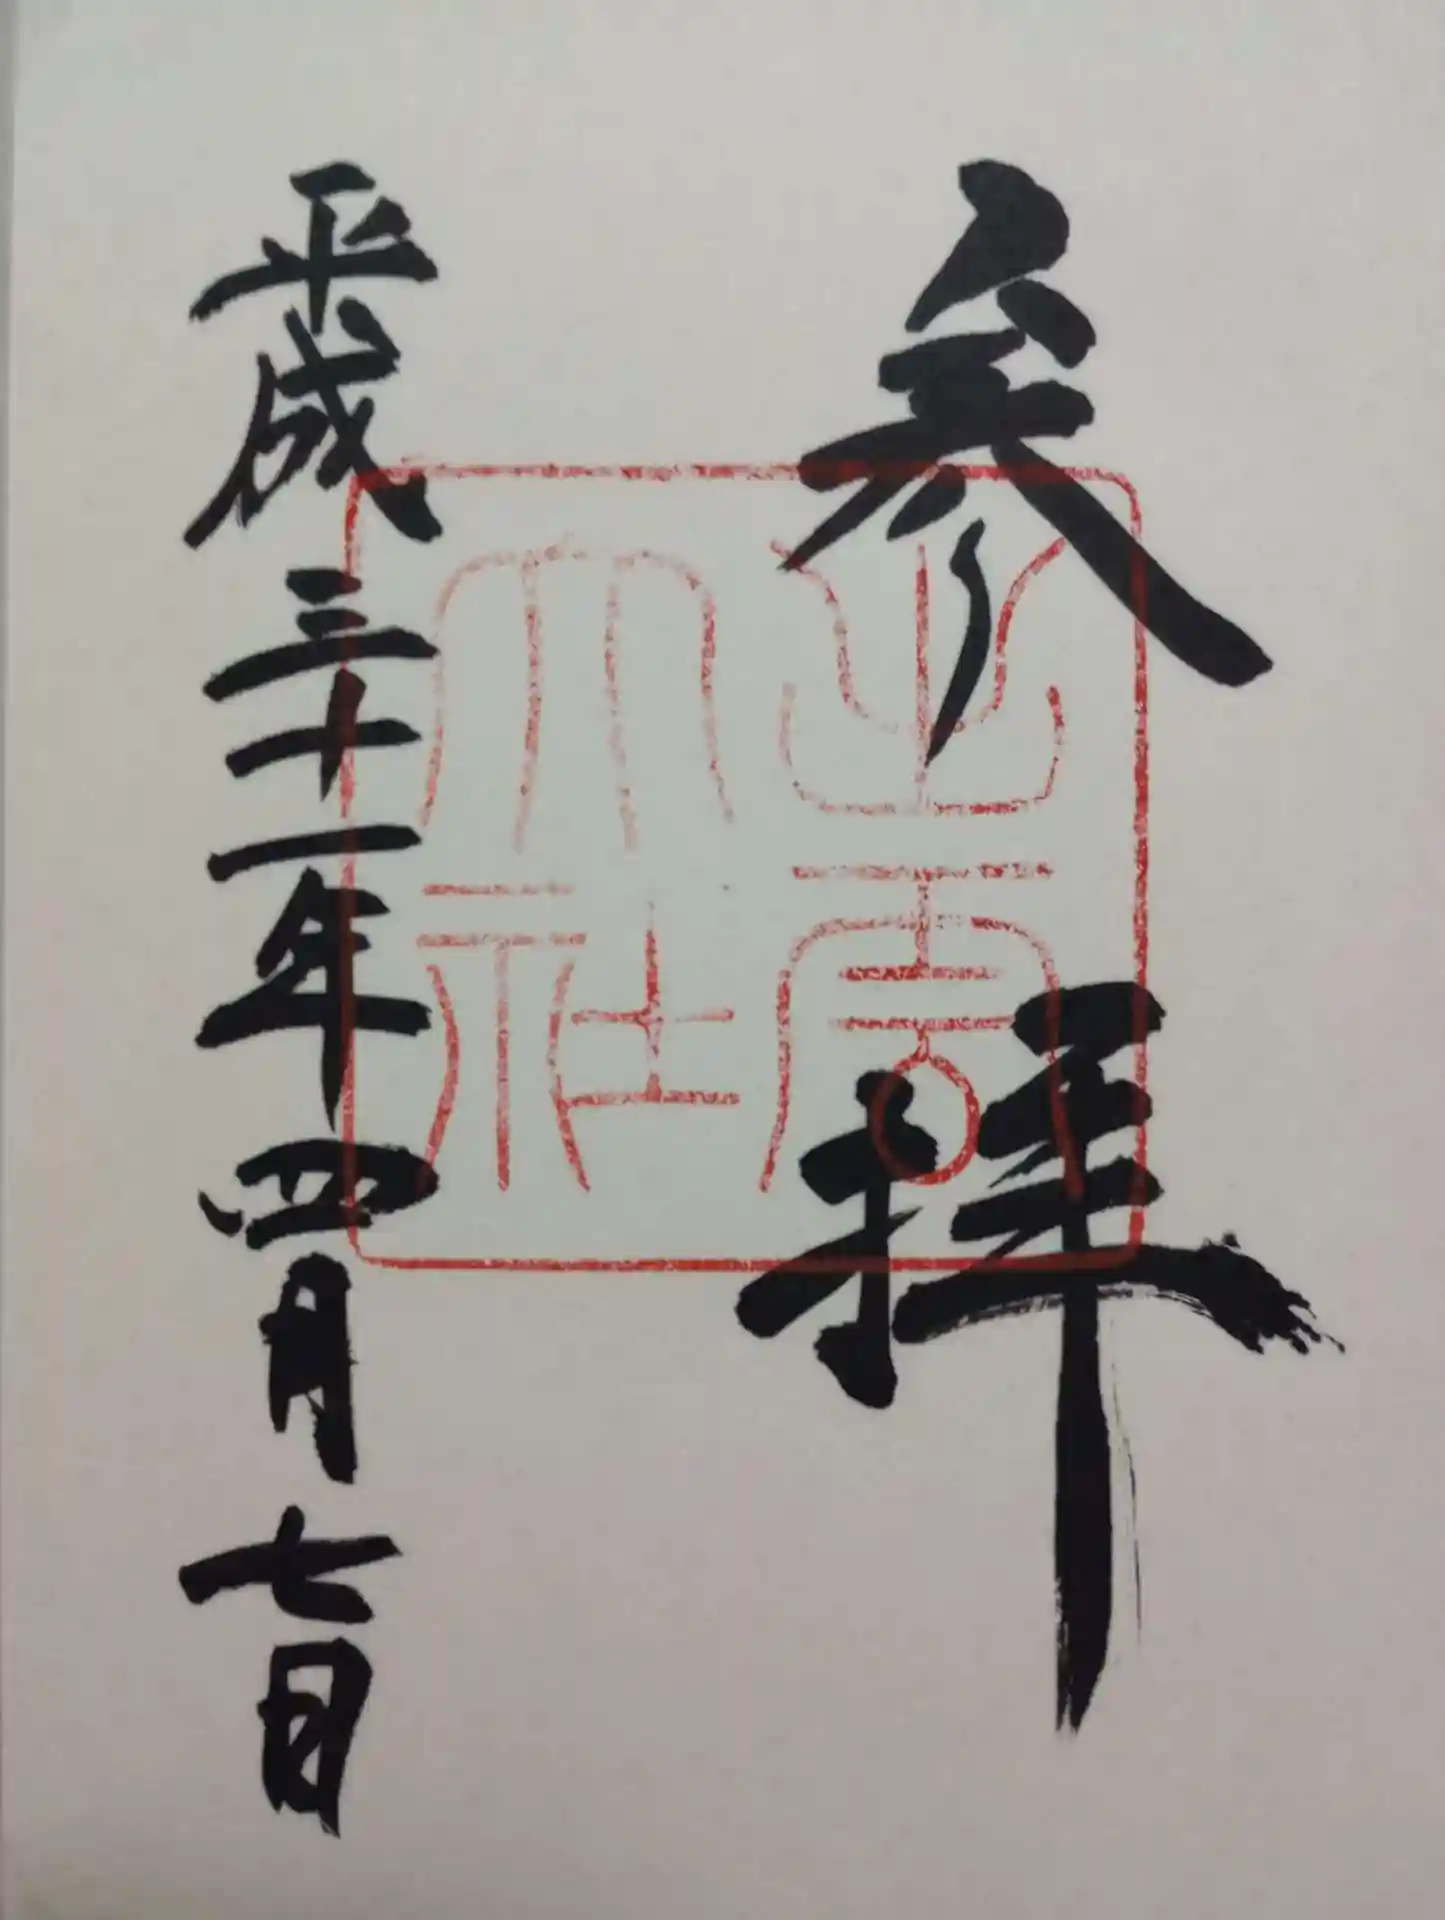 参拝
出雲
大社
平成三十一年四月七日